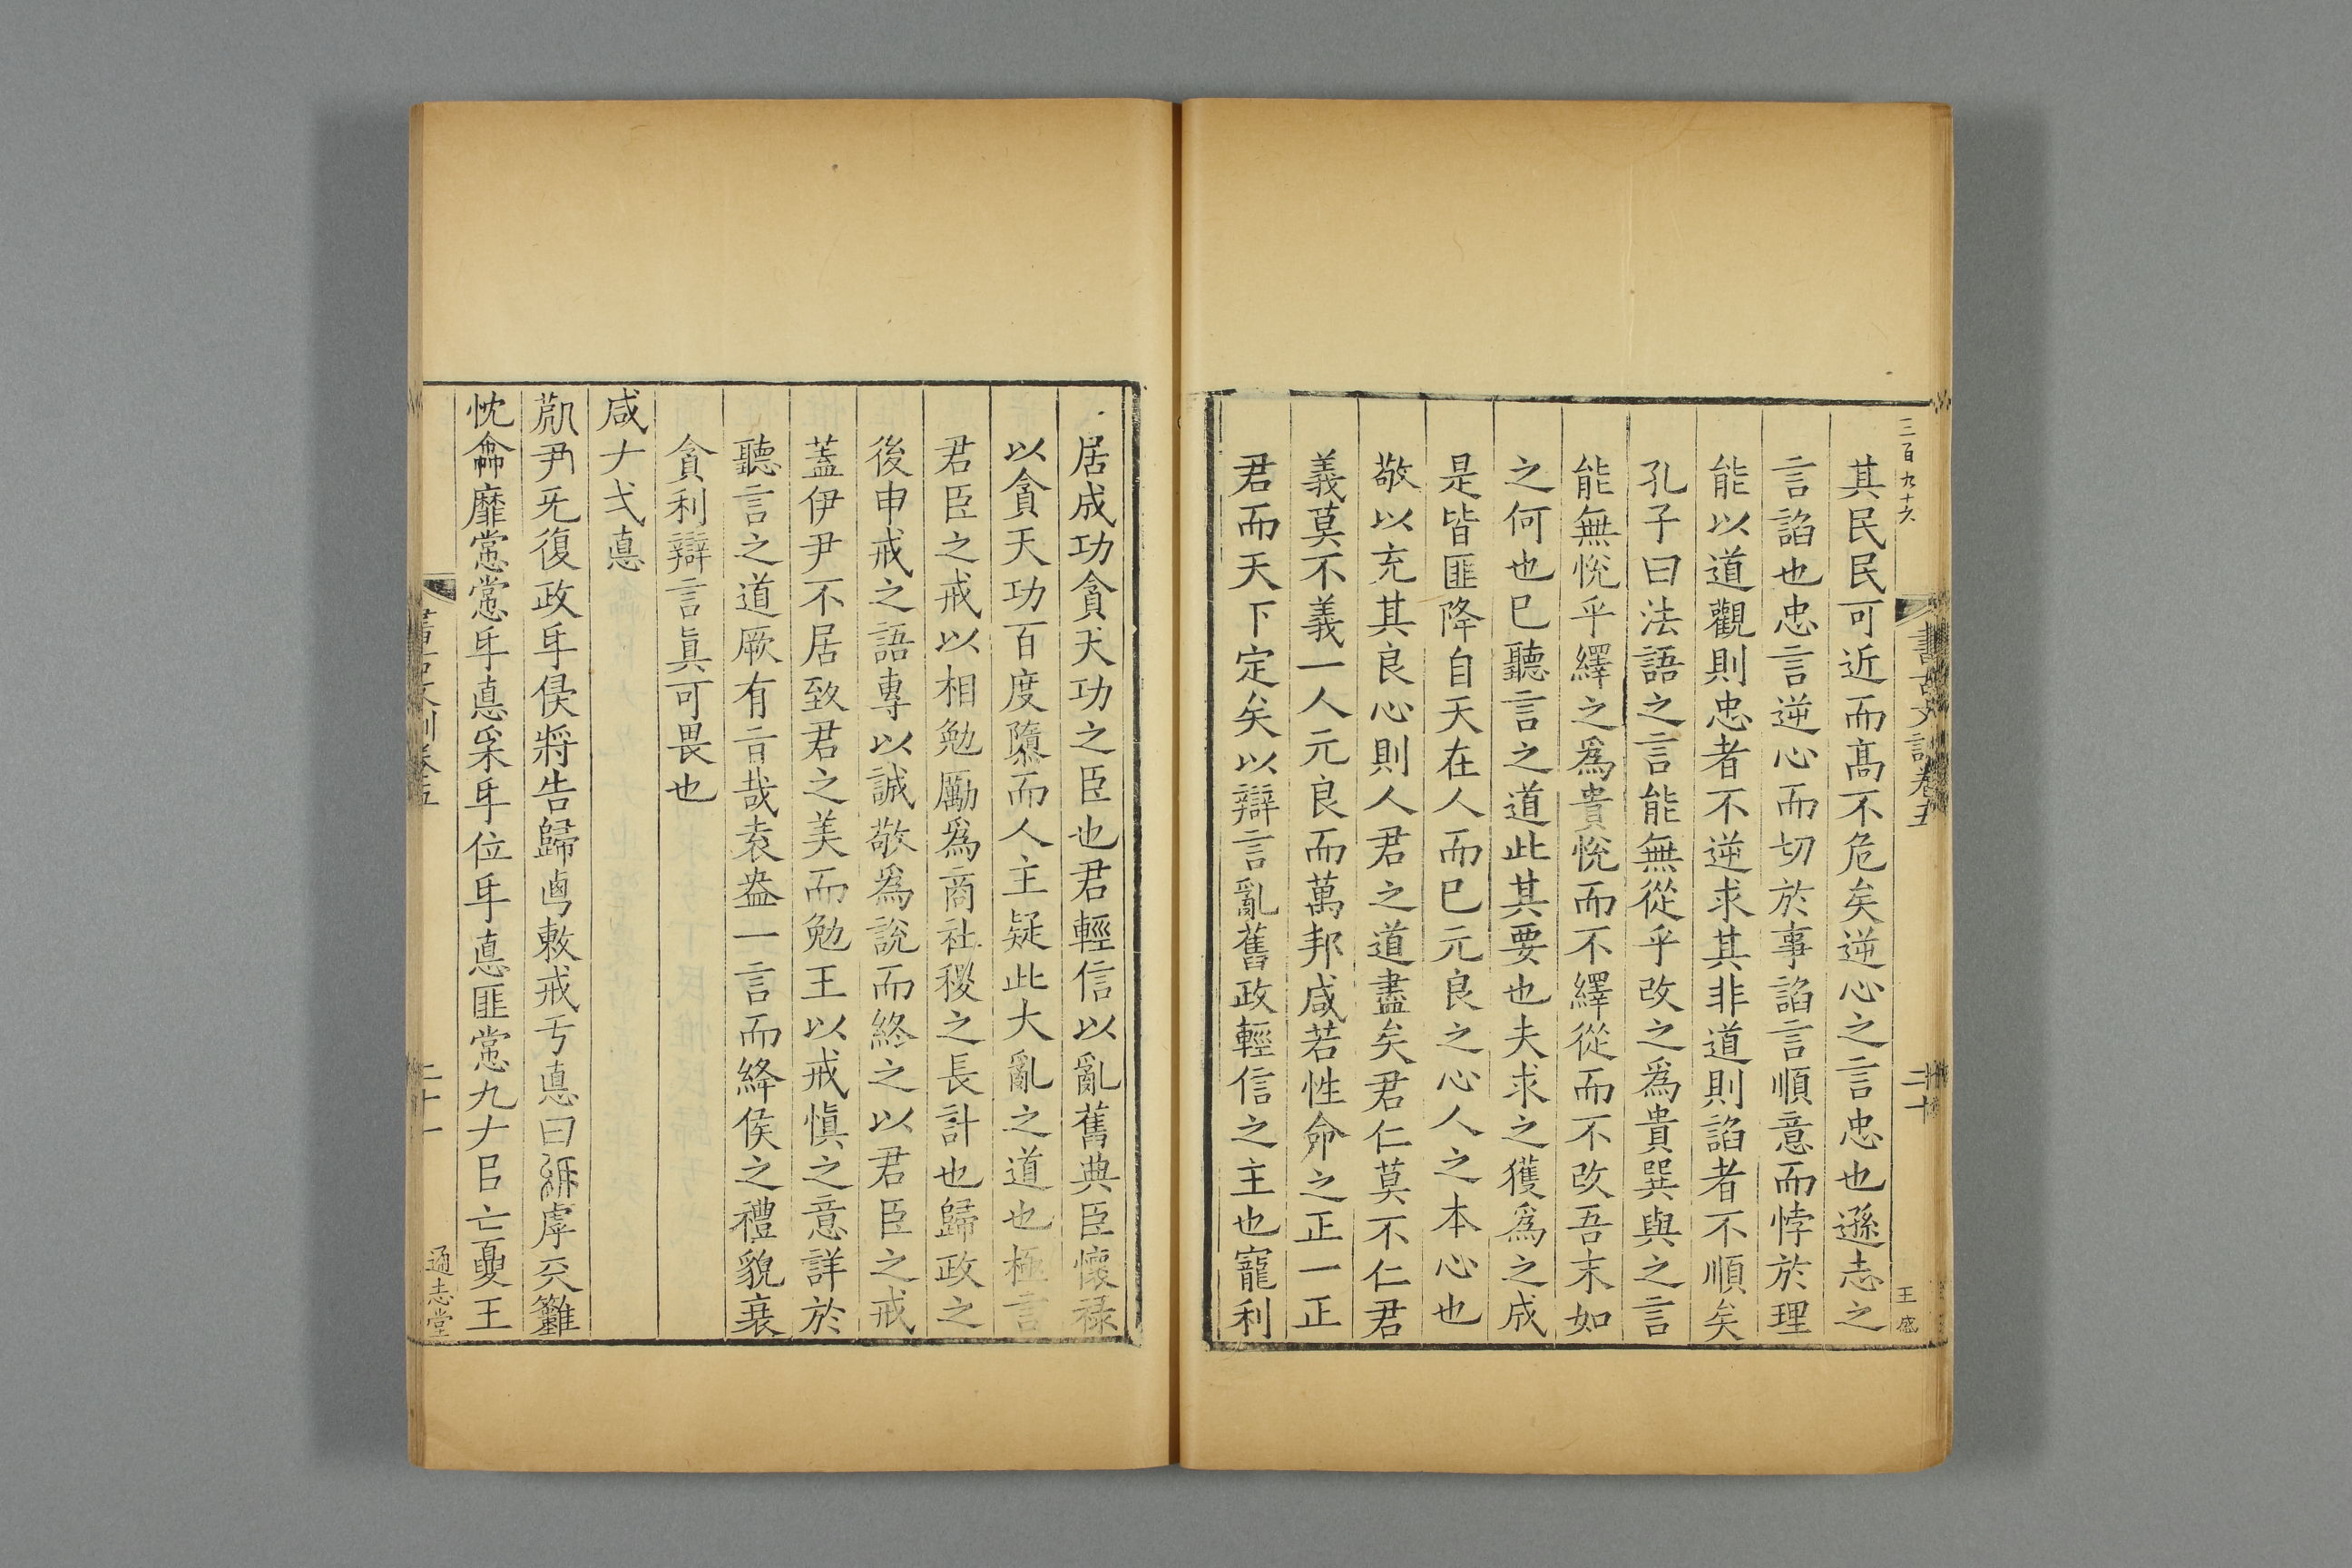 三百九十六
書古文訓卷五
二十
王盛
其民民可近而高不危矣逆心之言忠也遜志之
言諂也忠言逆心而切於事諂言順意而悖於理
能以道觀則忠者不逆求其非道則諂者不順矣
孔子曰法語之言能無從乎改之爲貴巽與之言
能無悅乎繹之爲貴悅而不繹從而不改吾末如
之何也已聽言之道此其要也夫求之獲爲之成
是皆匪降自天在人而已元良之心人之本心也
敬以充其良心則人君之道盡矣君仁莫不仁君
義莫不義一人元良而萬邦咸若性命之正一正
君而天下定矣以辯言亂舊政輕信之主也寵利
居成功貪天功之臣也君輕信以亂舊典臣懷祿
以貪天功百度隳而人主疑此大亂之道也極言
君臣之戒以相勉勵爲商社稷之長計也歸政之
後申戒之語專以誠敬爲說而終之以君臣之戒
蓋伊尹不居致君之美而勉王以戒愼之意詳於
聽言之道厥有旨哉袁盎一言而絳侯之禮貌衰
貪利辯言眞可畏也
咸𠂇弌悳
尹旡復政𠂇侯將告歸𠧟敕戒亏悳曰虖兲難
忱靡悳匪九𠂇亡夓王
書古文訓卷五
二十一
通志堂